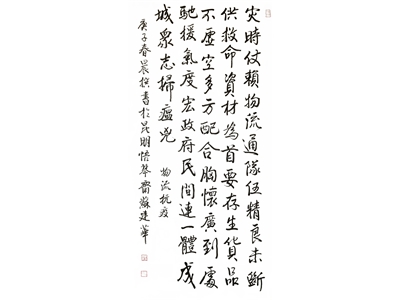 灾時仗賴物流通隊伍精良未斷
供救命資材為首要存生貨品
不虛空多方配合胸懷廣到處
馳援氣度宏政府民間連一體成
城衆志掃瘟兇
物流抗疫
庚子春晨撰書於昆明琴齋蘇建華